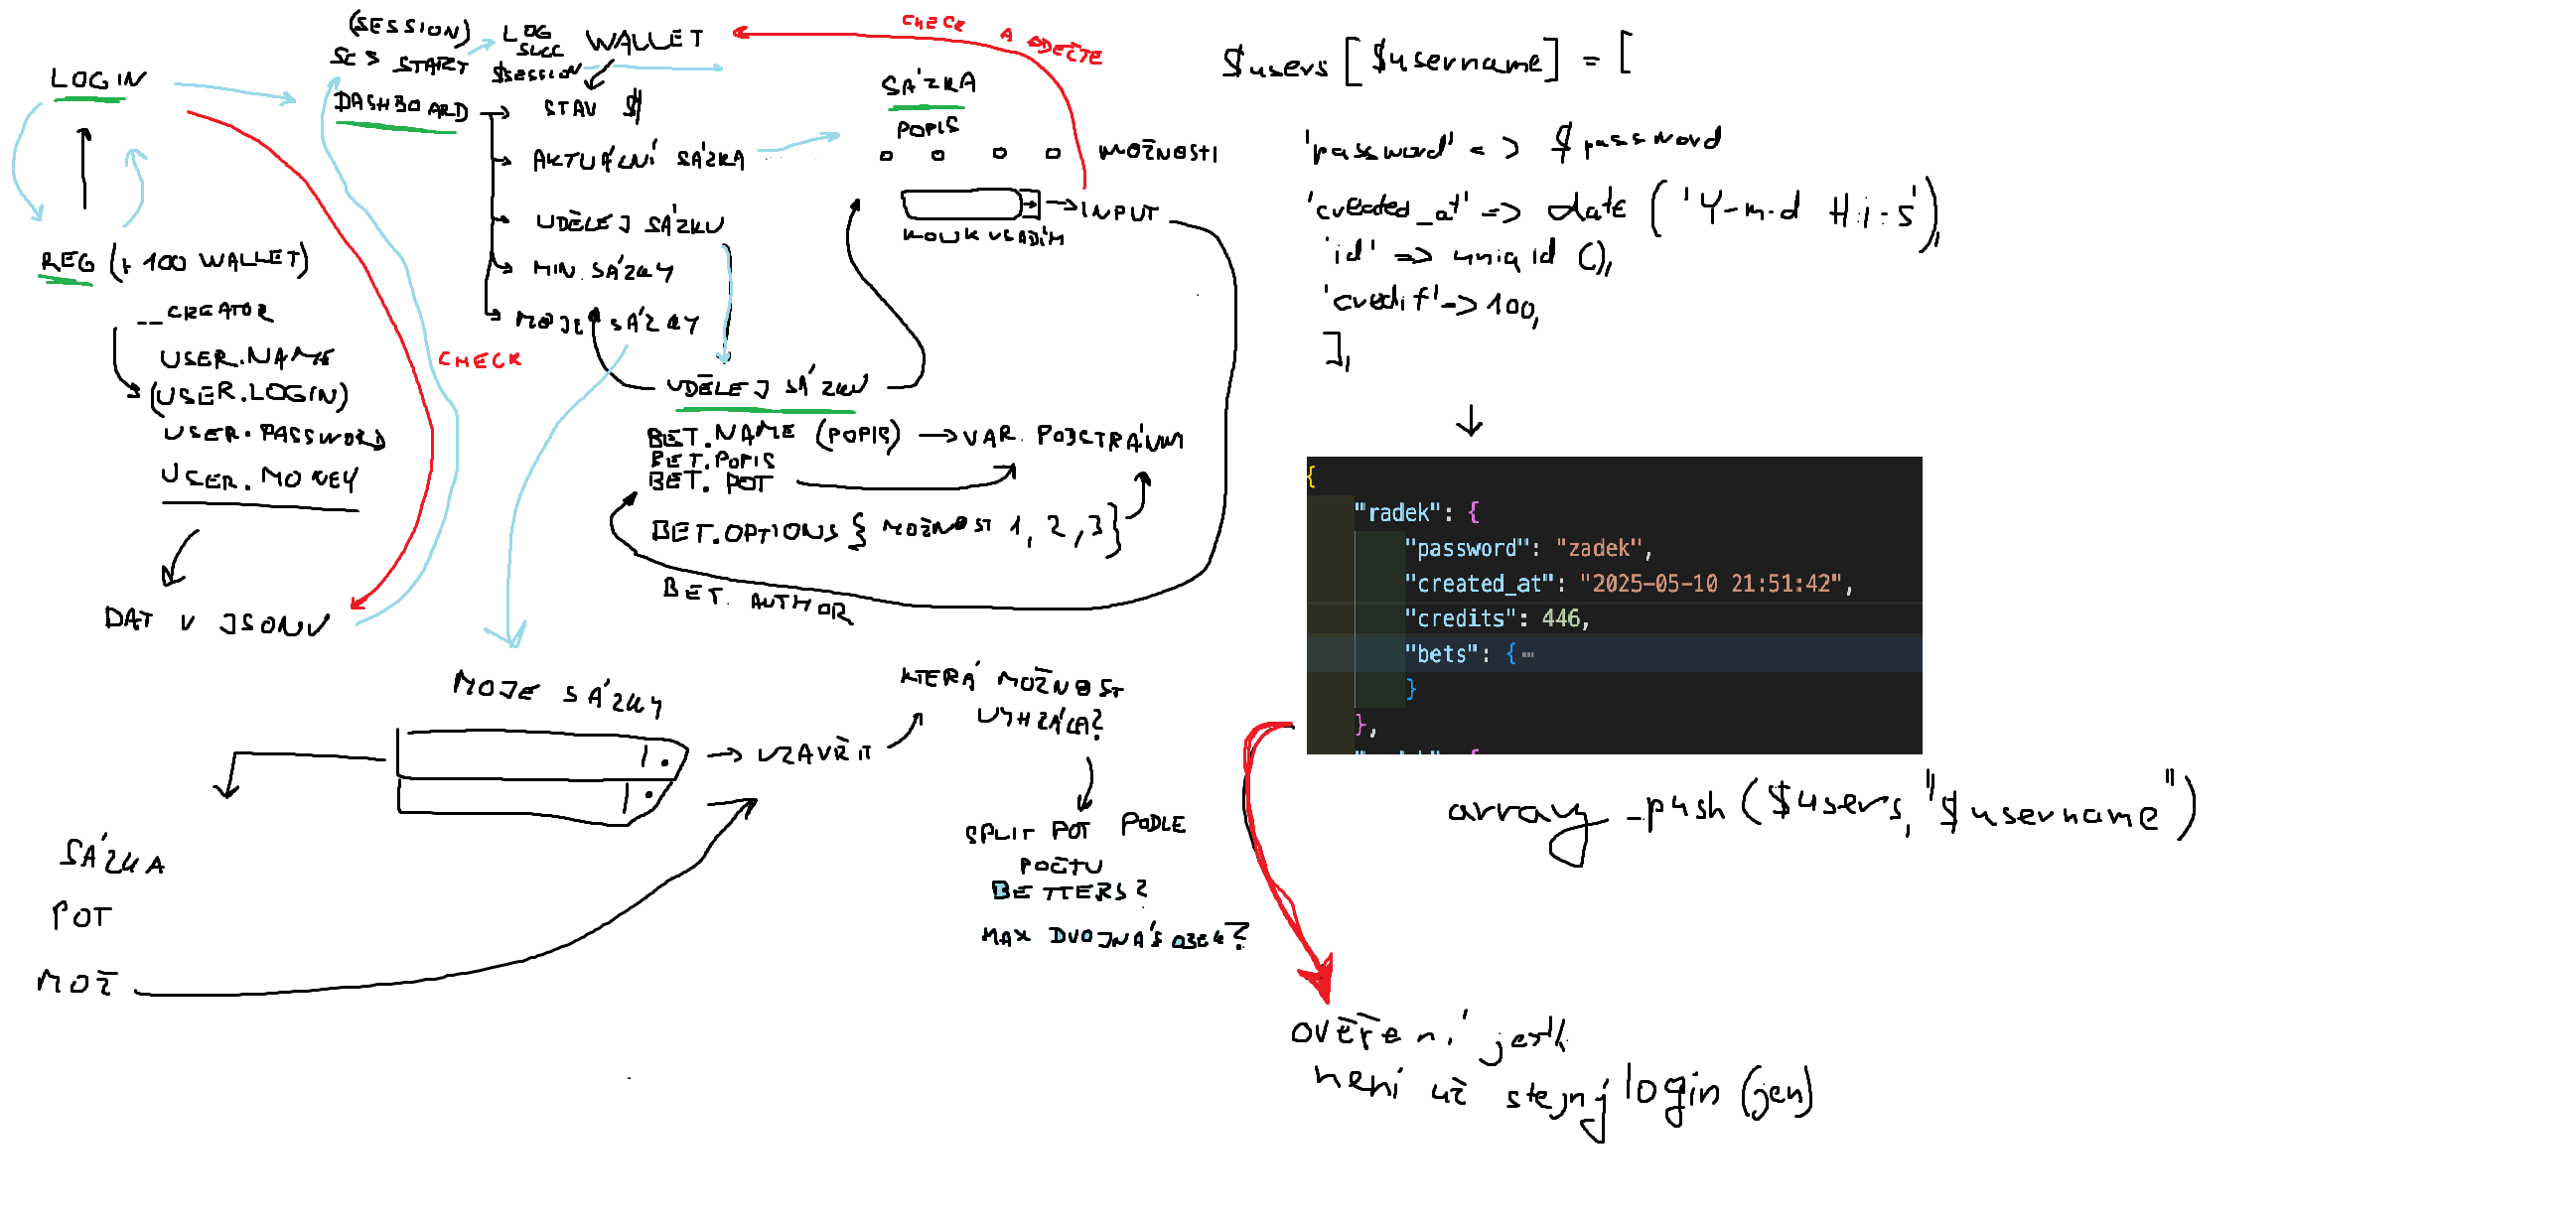 LOGIN
REG (+ 100 WALLET)
__CREATOR
USER.NAME
(USER.LOGIN)
USER.PASSWORD
USER.MONEY
DAT V JSONU
(SESSION)
START
LOG
SUCC
$SESSION
WALLET
CHECK A ODEČTE
DASHBOARD
STAV $
AKTUÁLNÍ SÁZKA
UDĚLEJ SÁZKU
MIN. SÁZKY
MOJE SÁZKY
CHECK
SÁZKA
POPIS
MOŽNOSTI
INPUT
KOLIK VSADÍM
UDĚLEJ SÁZKU
BET.NAME (POPIS)
VAR. PODSTRÁNKA
BET.POPIS
BET. POT
BET.OPTIONS { MOŽNOST 1, 2, 3}
BET. AUTHOR
MOJE SÁZKY
UZAVŘIT
KTERÁ MOŽNOST
VYHRÁLA?
SPLIT POT PODLE
POČTU
BETTERS?
MAX DVOJNÁSOBEK?
SÁZKA
POT
MOŽ
$users [$username] = [
'password' => $password
'created_at' => date ('Y-m-d H:i:s'),
'id' => uniqid (),
'credit' => 100,
],
{
"radek": {
"password": "zadek",
"created_at": "2025-05-10 21:51:42",
"credits": 446,
"bets": {
}
},
array_push ($users, "$username")
ověření jestli
není už stejný login (jen)